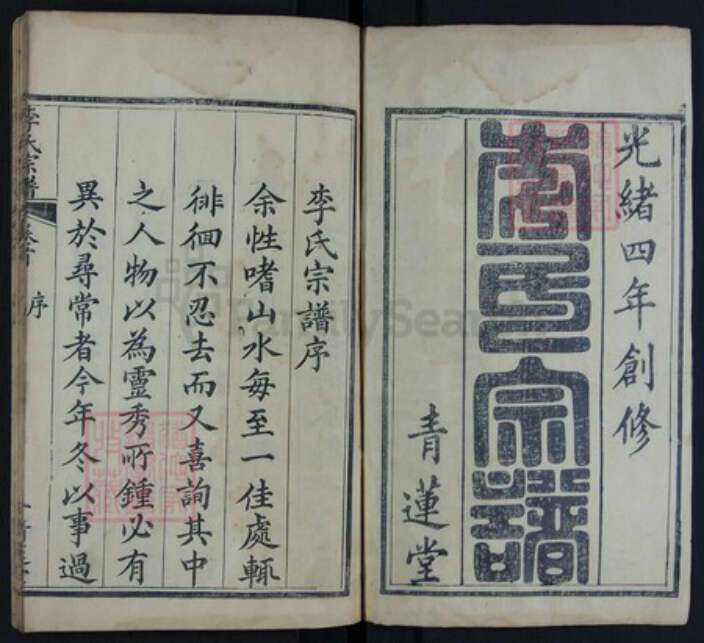 光緒四年創修
李氏宗譜
青蓮堂
李氏宗譜序
余性嗜山水每至一佳處輒
徘徊不忍去而又喜詢其中
之人物以為靈秀所鍾必有
異於尋常者今年冬以事過
李氏宗譜
序
FamilySearch